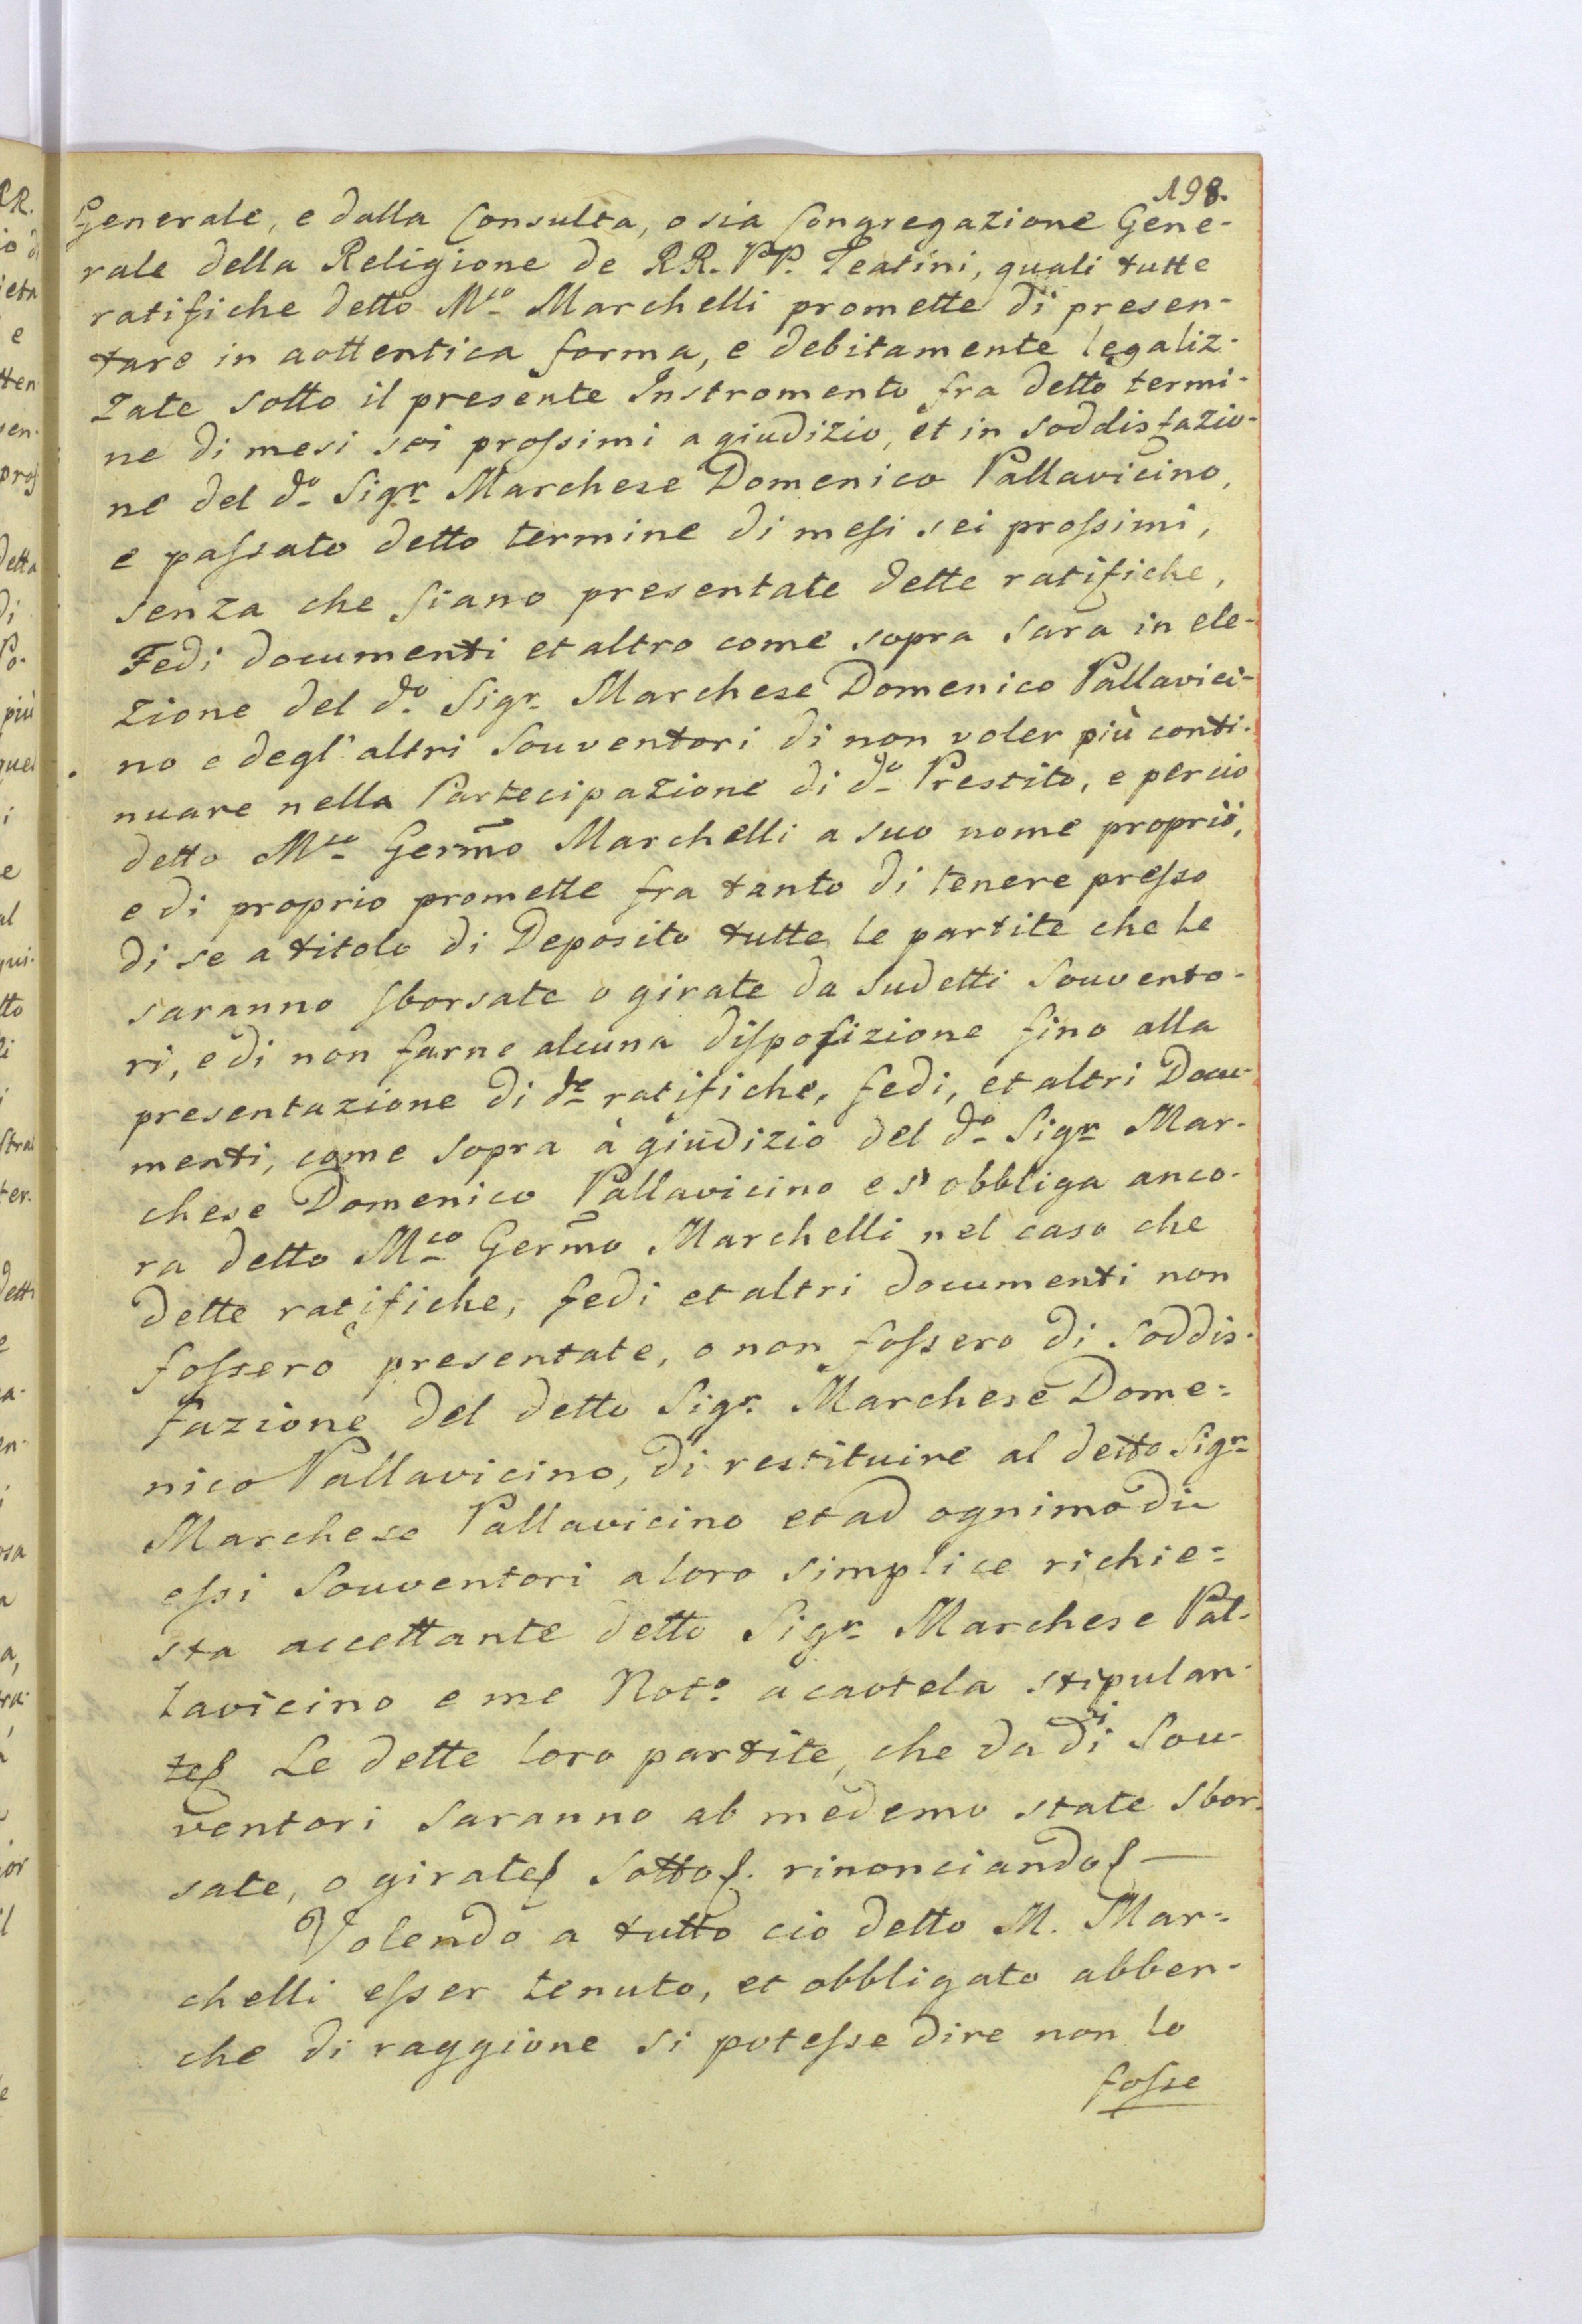 198.
Generale, e dalla Consulta, o sia Congregazione Gene-
rale della Religione de RR. PP. Teatini, quali tutte
ratifiche detto M.co Marchelli promette di presen-
tare in aottentica forma, e debitamente legaliz-
zate sotto il presente Instromento fra detto termi-
ne di mesi sei prossimi a giudizio, et in soddisfazio-
ne del d.o Sig.r Marchese Domenico Pallavicino,
e passato detto termine di mesi sei prossimi,
senza che siano presentate dette ratifiche,
Fedi documenti et altro come sopra sarà in ele-
zione del d.o Sig.r Marchese Domenico Pallavici-
no e degl' altri Souventori di non voler più conti-
nuare nella Partecipazione di d.o Prestito, e perciò
detto M.co Germ̃o Marchelli a suo nome proprio,
e di proprio promette fra tanto di tenere presso
di se a titolo di Deposito tutte le partite che le
saranno sborsate o girate da sudetti Souvento-
ri, e di non farne alcuna disposizione fino alla
presentazione di d.e ratifiche, fedi, et altri Docu-
menti, come sopra à giudizio del d.o Sig.r Mar-
chese Domenico Pallavicino e s'obbliga anco-
ra detto M.co Germ̃o Marchelli nel caso che
dette ratifiche, fedi et altri documenti non
fossero presentate, o non fossero di soddis-
fazione del detto Sig.r Marchese Dome=
nico Pallavicino, di restituire al detto Sig.r
Marchese Pallavicino et ad ognimodi
essi Souventori a loro simplice richie=
sta accettante detto Sig.r Marchese Pal-
lavicino e me Not.o a cautela stipulan-
te Le dette loro partite, che da d.i Sou-
ventori saranno al medemo state sbor-
sate, o girate sotto rinonciando —
Volendo a tutto ciò detto M. Mar=
chelli esser tenuto, et obbligato abben-
che di raggione si potesse dire non lo
fosse